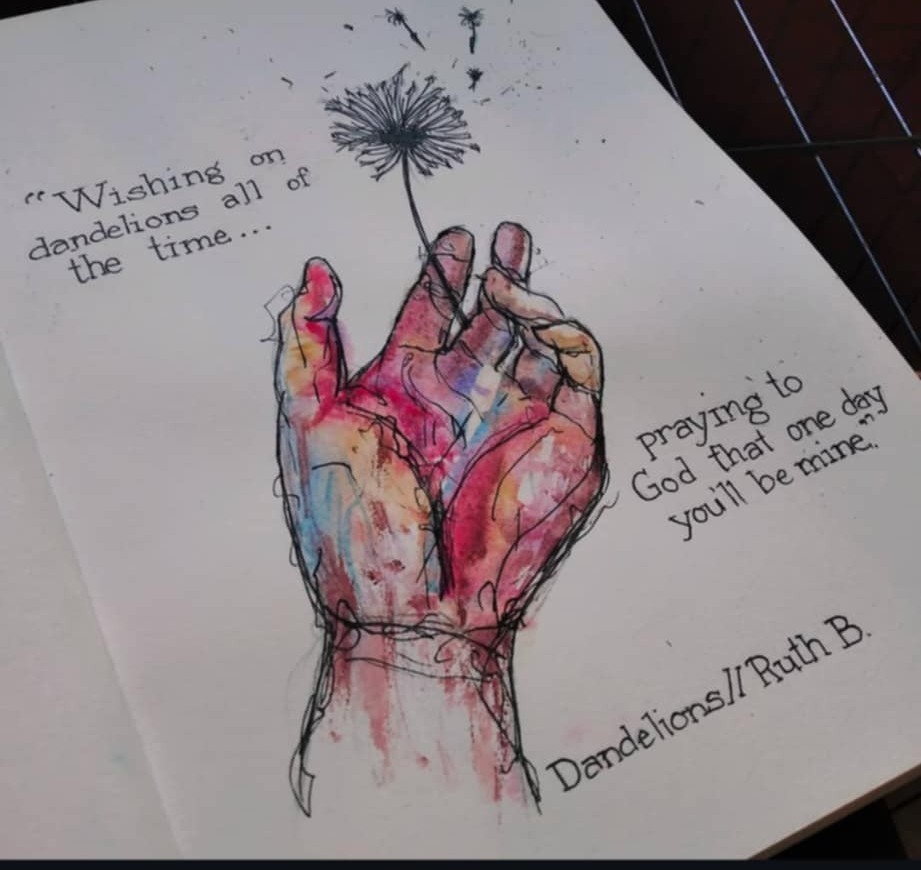 “Wishing on
dandelions all of
the time...
praying to
God that one day
you'll be mine.”
Dandelions//Ruth B.